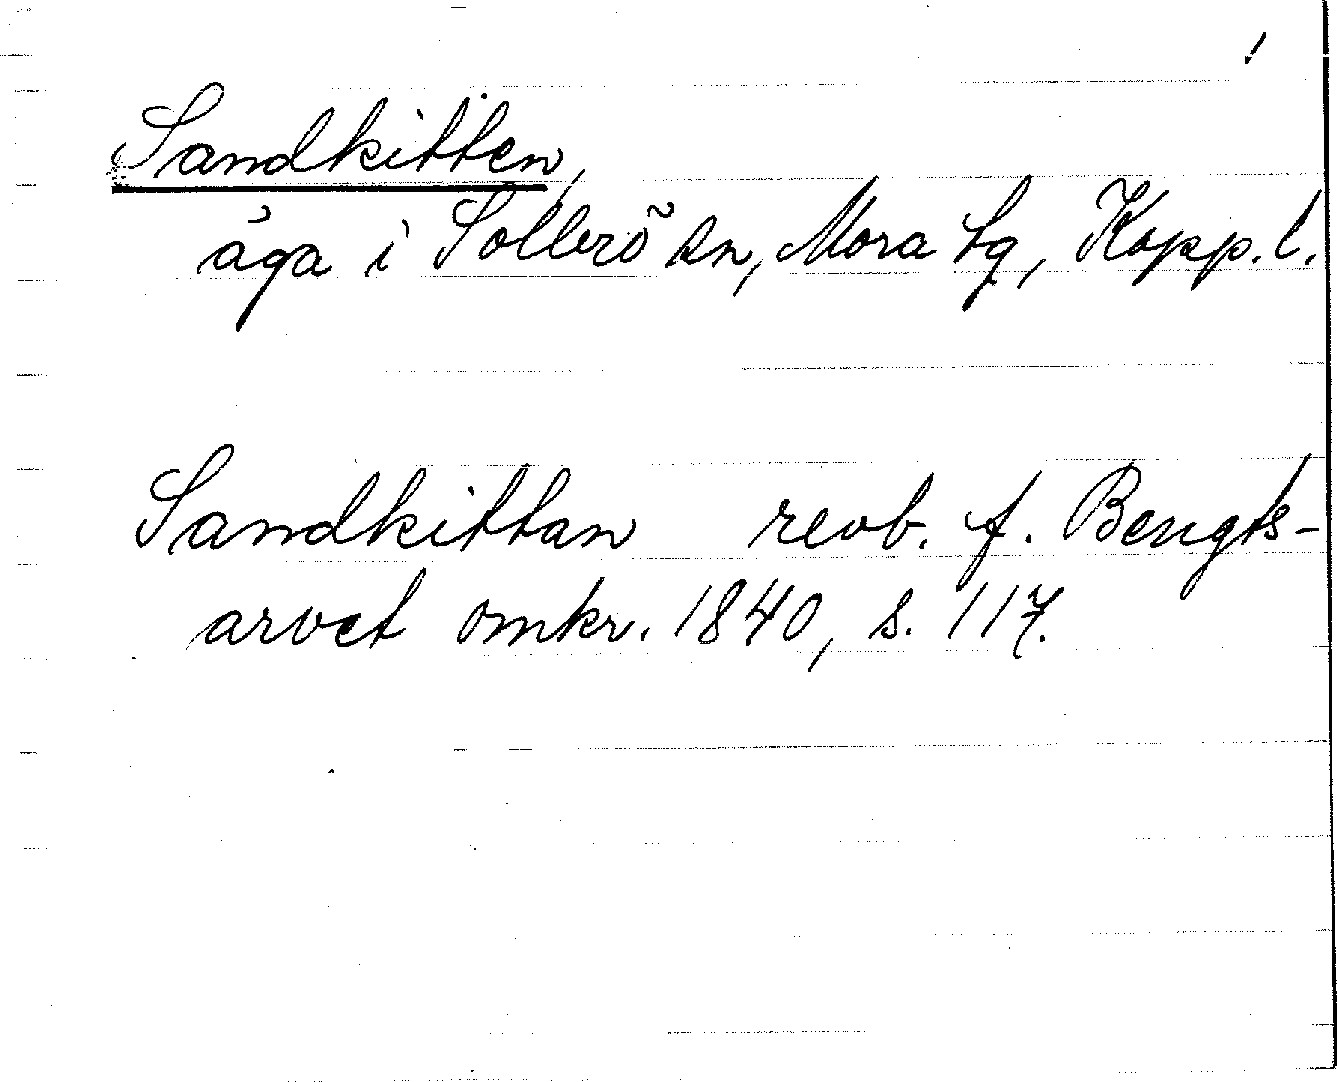 Sandkitten,
äga i Sollerö sn, Mora tg, Kopp. l.
Sandkittan revb. f. Bengts-
arvet omkr. 1840, s. 117.